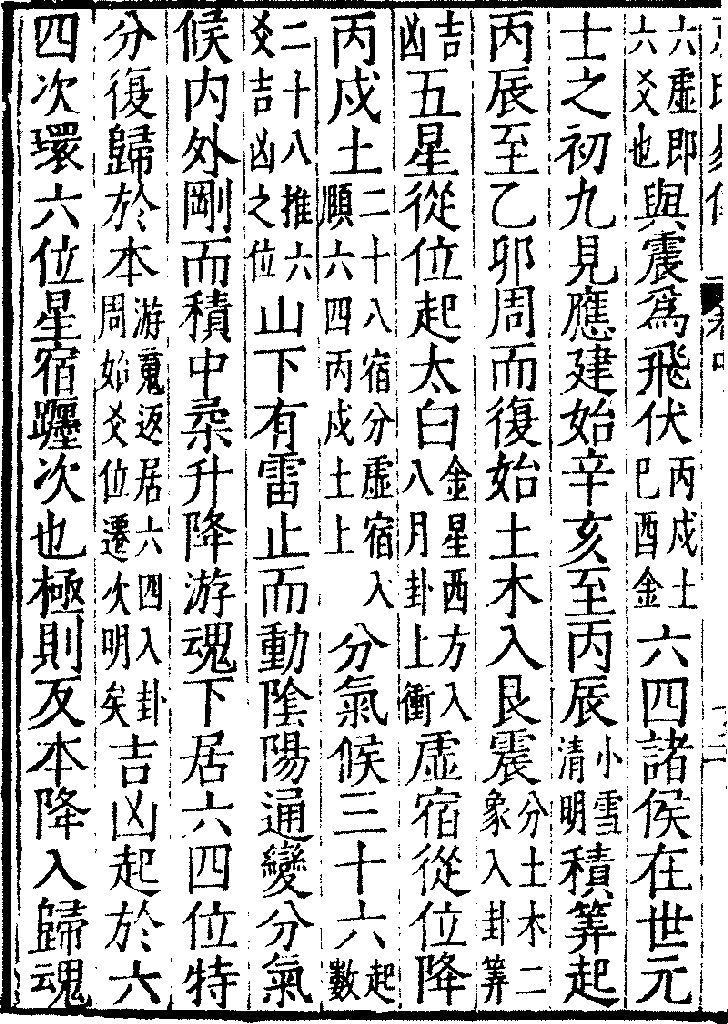 六虛即六爻也與震爲飛伏丙戌土巳酉金六四諸侯在世元
士之初九見應建始辛亥至丙辰小雪清明積筭起
丙辰至乙卯周而復始土木入艮震分土木二象入卦筭
吉凶五星從位起太白金星西方入八月卦上衝虛宿從位降
丙戌土二十八宿分虛宿入頤六四丙戌土上分氣候三十六起數
二十八推六爻吉凶之位山下有雷止而動陰陽通變分氣
候内外剛而積中柔升降游魂下居六四位特
分復歸於本游䰟返居六四入卦周始爻位遷次明矣吉凶起於六
四次環六位星宿躔次也極則反本降入歸魂